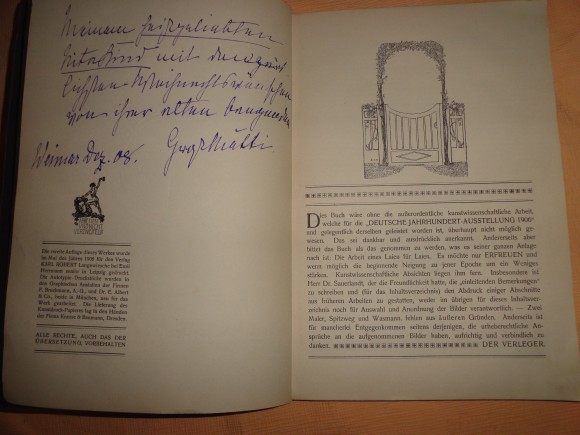 Meinem heißgeliebten
mit den
lichsten Weihnachtswünschen
von ihrer alten
Weimar Dez. 08.
Die zweite Auflage dieses Werkes wurde
im Mai des Jahres 1908 für den Verlag
KARL ROBERT Langewiesche bei Emil
Herrmann senior in Leipzig gedruckt.
Die Autotypie-Druckstöcke wurden in
den Graphischen Anstalten der Firmen
F. Bruckmann, A.-G. und Dr. E. Albert
& Co., beide in München, neu für das
Werk geätzt. Die Lieferung des
Kunstdruck-Papieres lag in den Händen
der Firma Krause & Baumann, Dresden.
ALLE RECHTE, AUCH DAS DER
ÜBERSETZUNG, VORBEHALTEN
Dies Buch wäre ohne die außerordentliche kunstwissenschaftliche Arbeit,
welche für die „DEUTSCHE JAHRHUNDERT-AUSSTELLUNG 1906“ und
gelegentlich derselben geleistet worden ist, überhaupt nicht möglich gewesen.
Das sei dankbar und ausdrücklich anerkannt. Andererseits aber
bittet das Buch als das genommen zu werden, was es seiner ganzen Anlage
nach ist. Die Arbeit eines Laien für Laien. Es möchte nur ERFREUEN und
wenn möglich die beginnende Neigung zu jener Epoche um ein Weniges
stärken. Kunstwissenschaftliche Absichten liegen ihm fern. Insbesondere ist
Herr Dr. Sauerlandt, der die Freundlichkeit hatte, die „einleitenden Bemerkungen“
zu schreiben und (für das Inhaltsverzeichnis) den Abdruck einiger Abschnitte
aus früheren Arbeiten zu gestatten, weder im übrigen für dieses Inhaltsverzeichnis
noch für Auswahl und Anordnung der Bilder verantwortlich. — Zwei
Maler, Spitzweg und Wasmann, fehlen aus äußeren Gründen. Anderseits ist
für mancherlei Entgegenkommen seitens derjenigen, die urheberrechtliche Ansprüche
an die aufgenommenen Bilder haben, aufrichtig und verbindlich zu
danken. DER VERLEGER.